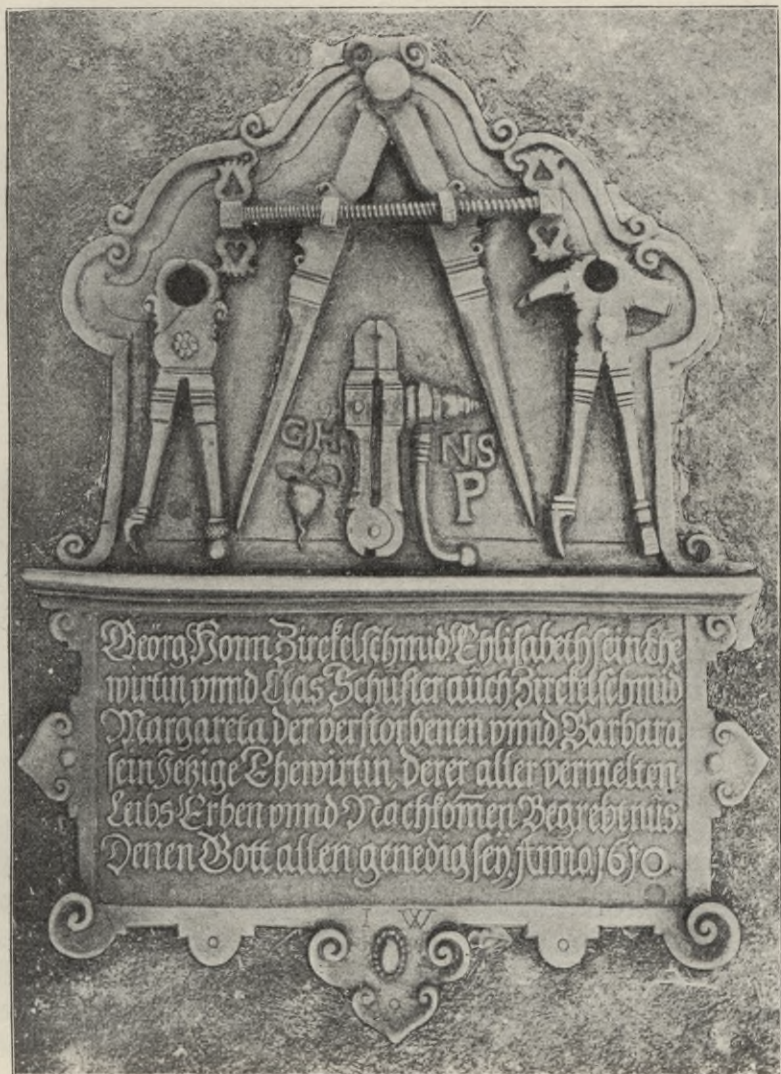 GH
NS
P
Geörg Honn Zirckelschmid. Ehlisabeth sein Ehe
wirtin, vnnd Clas Schuster auch Zirckelschmid
Margareta der verstorbenen vnnd Barbara
sein Jetzige Ehewirtin, derer aller vermelten
Leibs Erben vnnd Nachkom̄en Begrebtnus
Denen Gott allen genedig sey. Anno. 1610.
I W